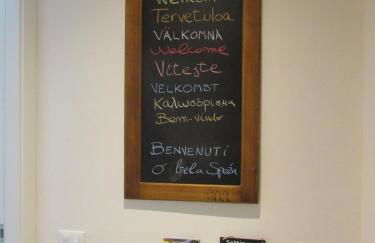 Tervetuloa
VÄLKOMNA
Welcome
Vítejte
VELKOMST
Καλωσόρισμα
Bem-vindo
BENVENUTI
O bela Speźa